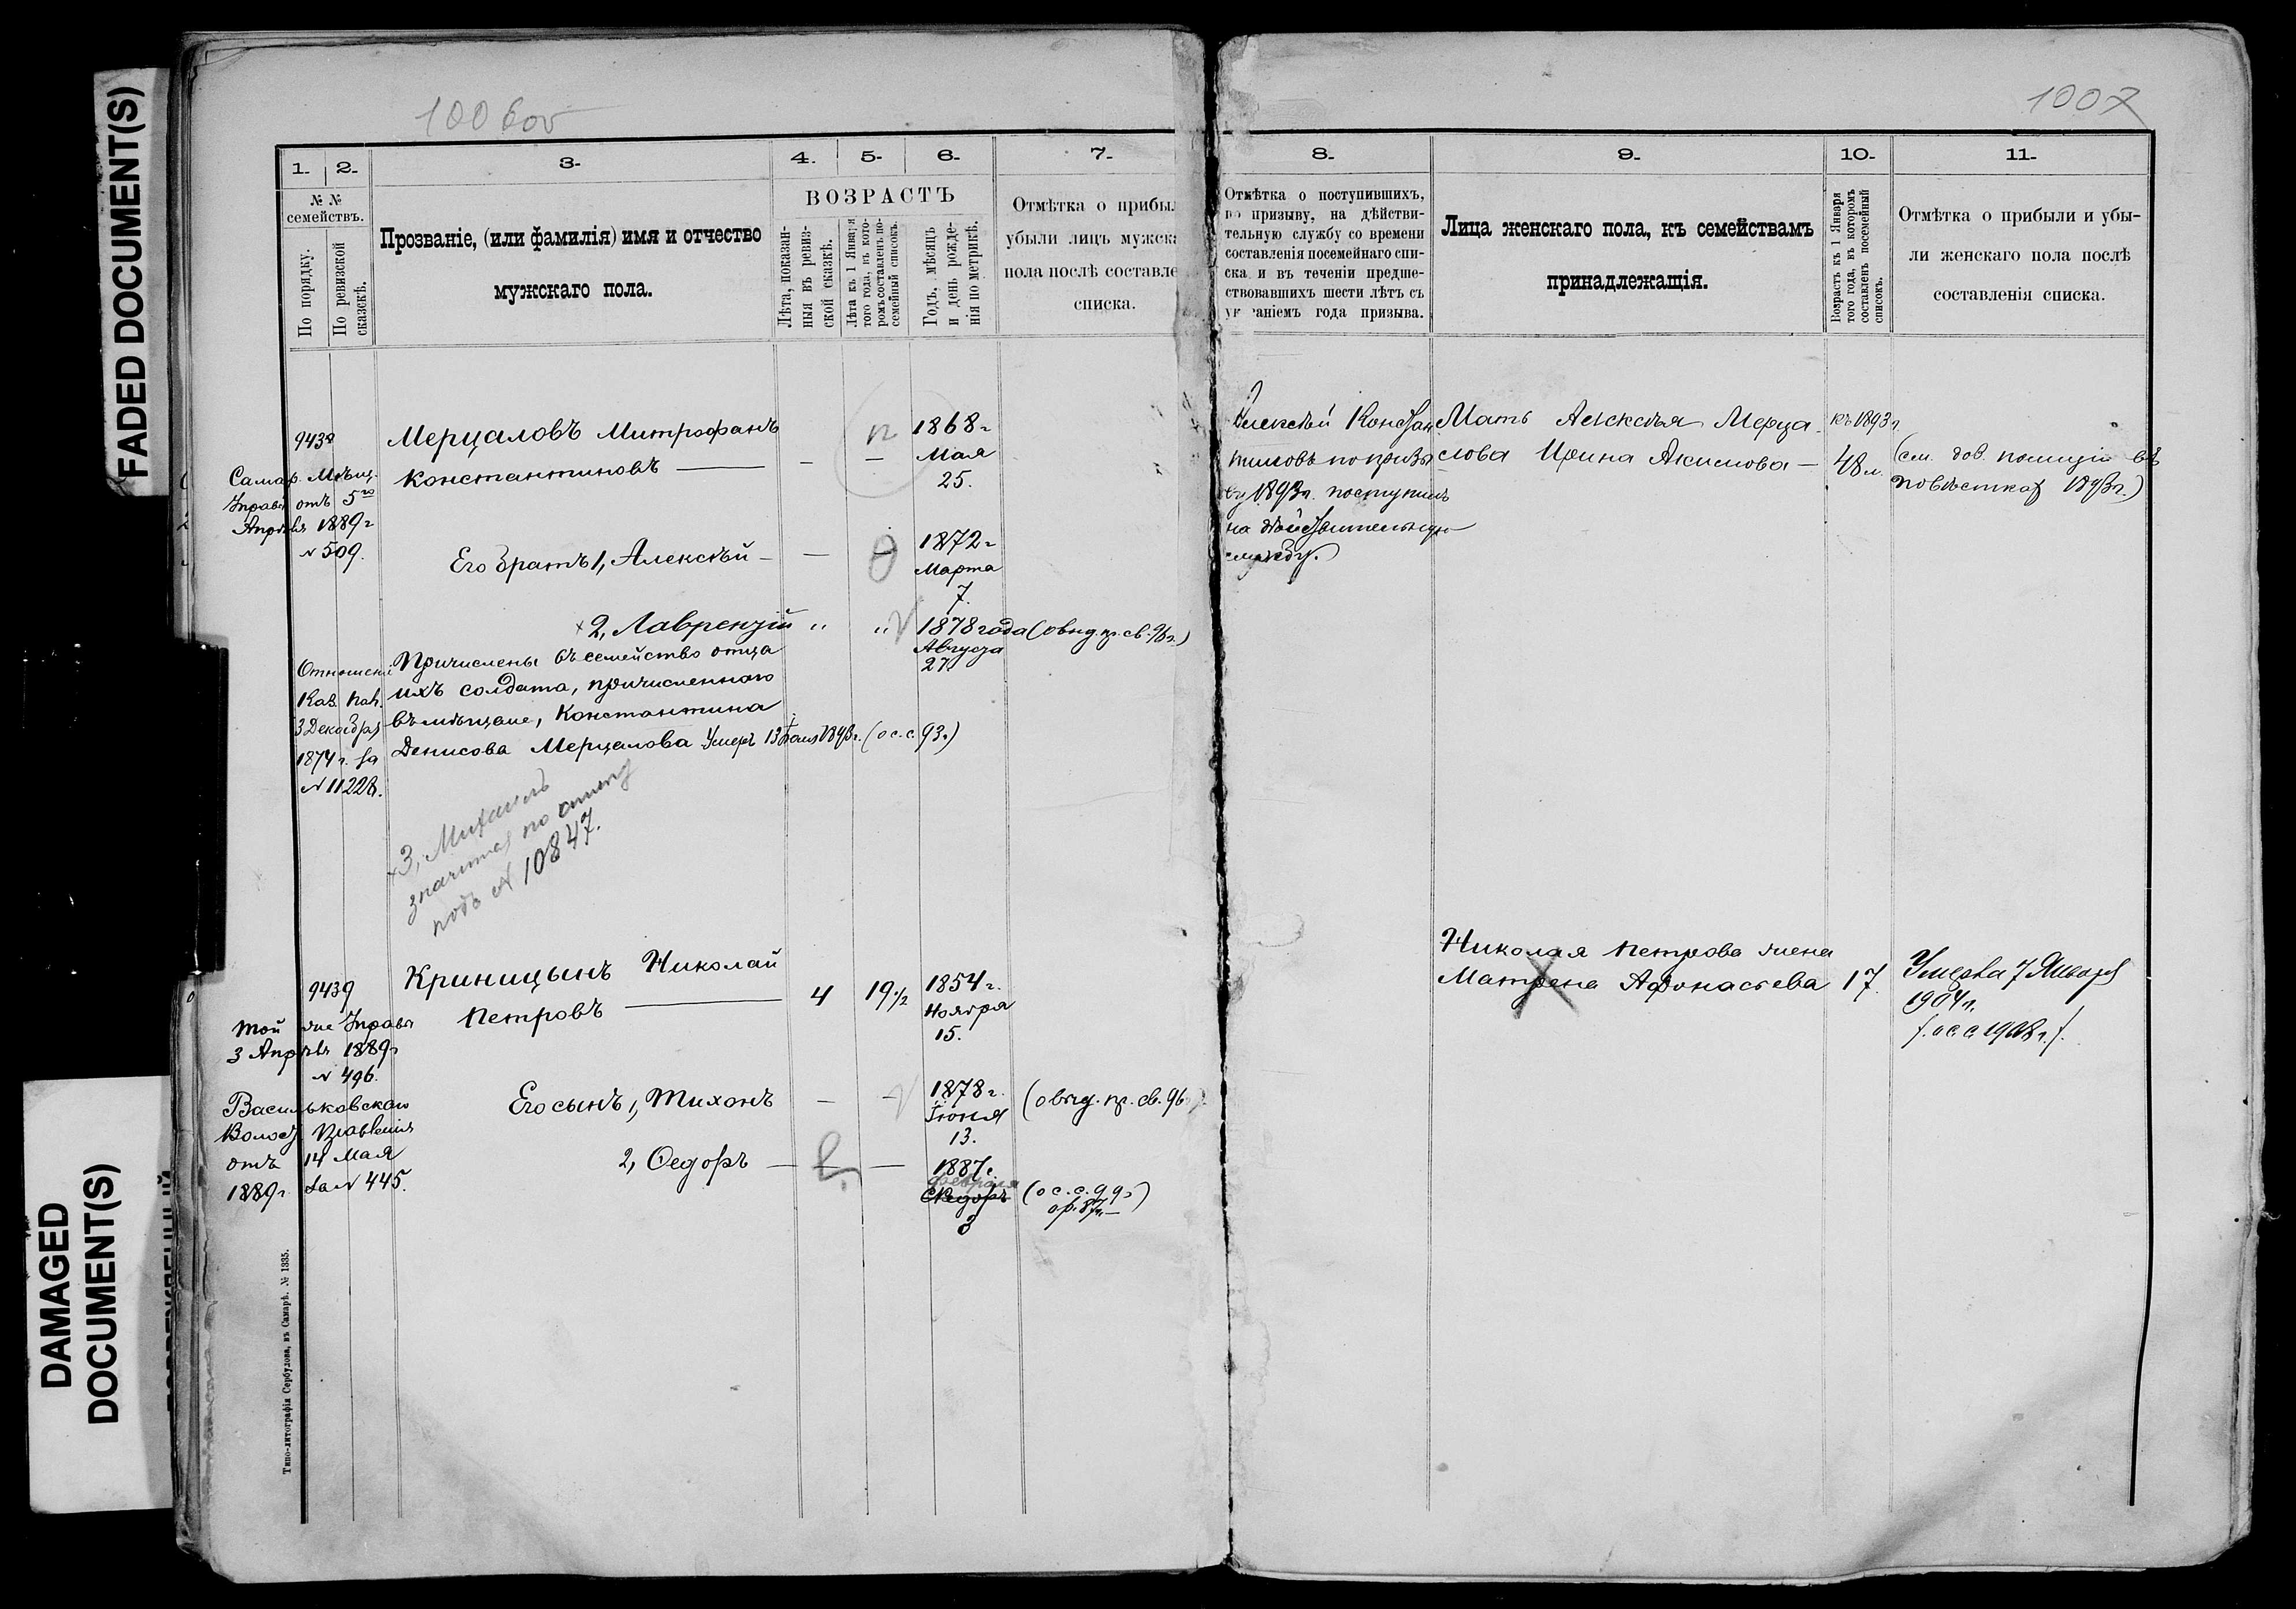 FADED DOCUMENT(S)
DAMAGED
DOCUMENT(S)
1007
1.
2.
3.
4.
5.
6.
7.
№ №
семействъ.
По порядку.
По ревизской
сказскѣ.
Прозваніе, (или фамилія) имя и отчество
мужскаго пола.
ВОЗРАСТЪ
Лѣта, показан-
ныя въ ревиз-
ской сказкѣ.
Лѣта къ 1 Января
того года, въ кото-
ромъ составленъ по-
семейный списокъ.
Годъ, мѣсяцъ
и день рожде-
нія по метрикѣ.
Отмѣтка о прибыл
убыли лицъ мужск
пола послѣ составле
списка.
9438
Самар. Мѣщ.
Управы отъ 5го
Апрѣля 1889 г
№ 509.
Мерцаловъ Митрофанъ
Константиновъ — —
1868 г
Мая
25.
Его братъ 1, Алексѣй — —
1872 г
Марта
7.
2, Лаврентій " "
1878 года (овнд. пр. св. 96 г.)
Августа
27
Причислены въ семейство отца
ихъ солдата, причисленнаго
въ мѣщане, Константина
Денисова Мерцалова Умеръ 13 1893 г. (о с. с. 93 г.)
Отношені
Каз. Пал.
3 Декабря
1874 г. за
№ 11228.
3, Михаилъ
значится по
подъ № 10847.
9439
Той же Управы
3 Апрѣля 1889 г
№ 496.
Васильковскаго
Волост. Правленія
отъ 14 Мая
1889 г. за № 445.
Криницынъ Николай
Петровъ — 4 19 1/2
1854 г.
Ноября
15.
Его сынъ 1, Тихонъ — —
1878 г.
Іюня
13.
(овнд. пр. св. 96
2, Ѳедоръ — — —
1887 г.
Февраля
Ѳедоръ
3
(о с. с. 99 г)
Типо-литографія Сербулова, въ Самарѣ. № 1335.
8.
9.
10.
11.
Отмѣтка о поступившихъ,
по призыву, на дѣйстви-
тельную службу со времени
составленія посемейнаго спи-
ска и въ теченіи предше-
ствовавшихъ шести лѣтъ съ
указаніемъ года призыва.
Лица женскаго пола, къ семействамъ
принадлежащія.
Возрастъ къ 1 Января
того года, въ которомъ
составленъ посемейный
списокъ.
Отмѣтка о прибыли и убы-
ли женскаго пола послѣ
составленія списка.
Алексѣй Констан
тиновъ по призы
ву 1893 г. поступилъ
на дѣйствительную
службу.
Мать Алексѣя Мерца
лова Ирина Акимова —
къ 1893 г.
48 л.
(см. доз. полиціи въ
повѣсткахъ 1893 г.)
Николая Петрова жена
Матрена Афонасьева 17.
Умерла 7 Января
1904 г.
/. о с. с. 1908 г. /.